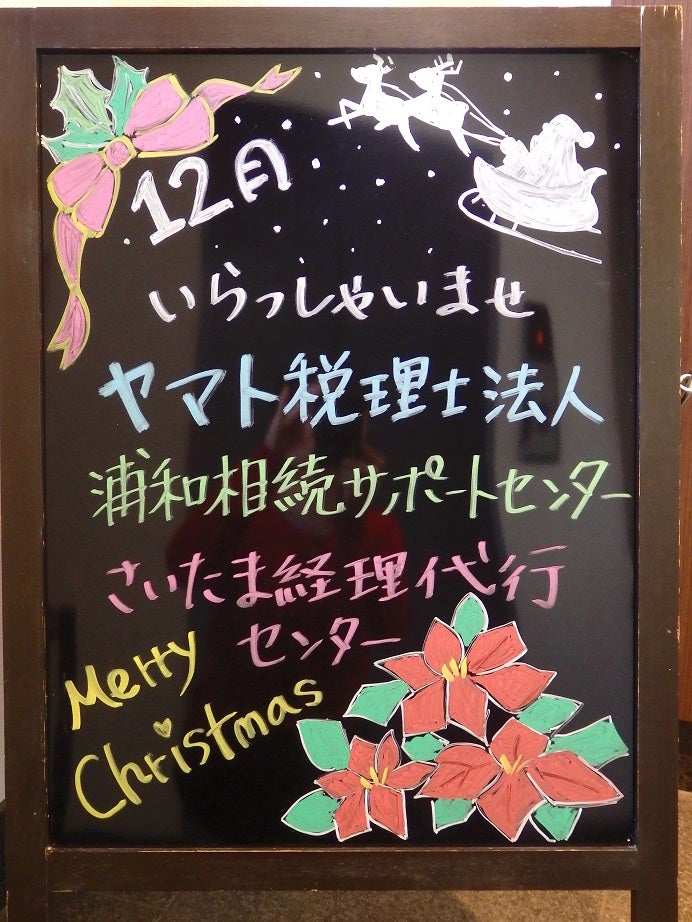 12月
いらっしゃいませ
ヤマト税理士法人
浦和相続サポートセンター
さいたま経理代行
センター
Merry
Christmas